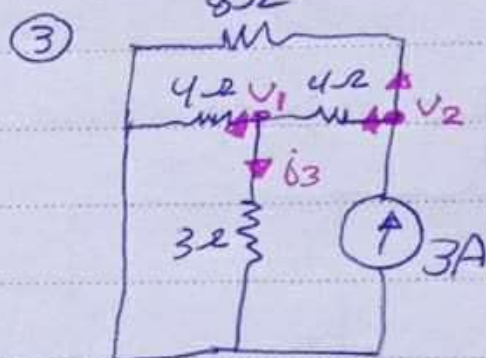 ③
8Ω
4Ω V1 4Ω V2
i3
3Ω
3A